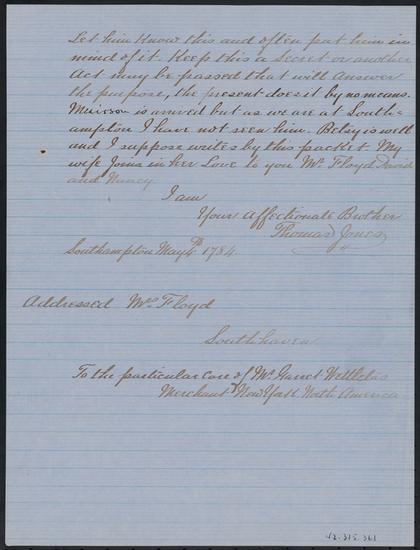 Let him Know this and often put him in
mind of it. Keep this a Secret or another
Act may be passed that will answer
the purpose, the present does it by no means.
is arrived but as we are at South=
ampton I have not seen him. Betsy is well
and I suppose writes by this packet. My
wife Joins in her Love to you Mr. Floyd David
and Nancy
I am
Your Affectionate Brother
Thomas Jones
Southampton May 4th 1784.
Addressed Mrs Floyd
Southhaven
To the particular Care of Mr. Garret
Merchant New York North America
42.315.361